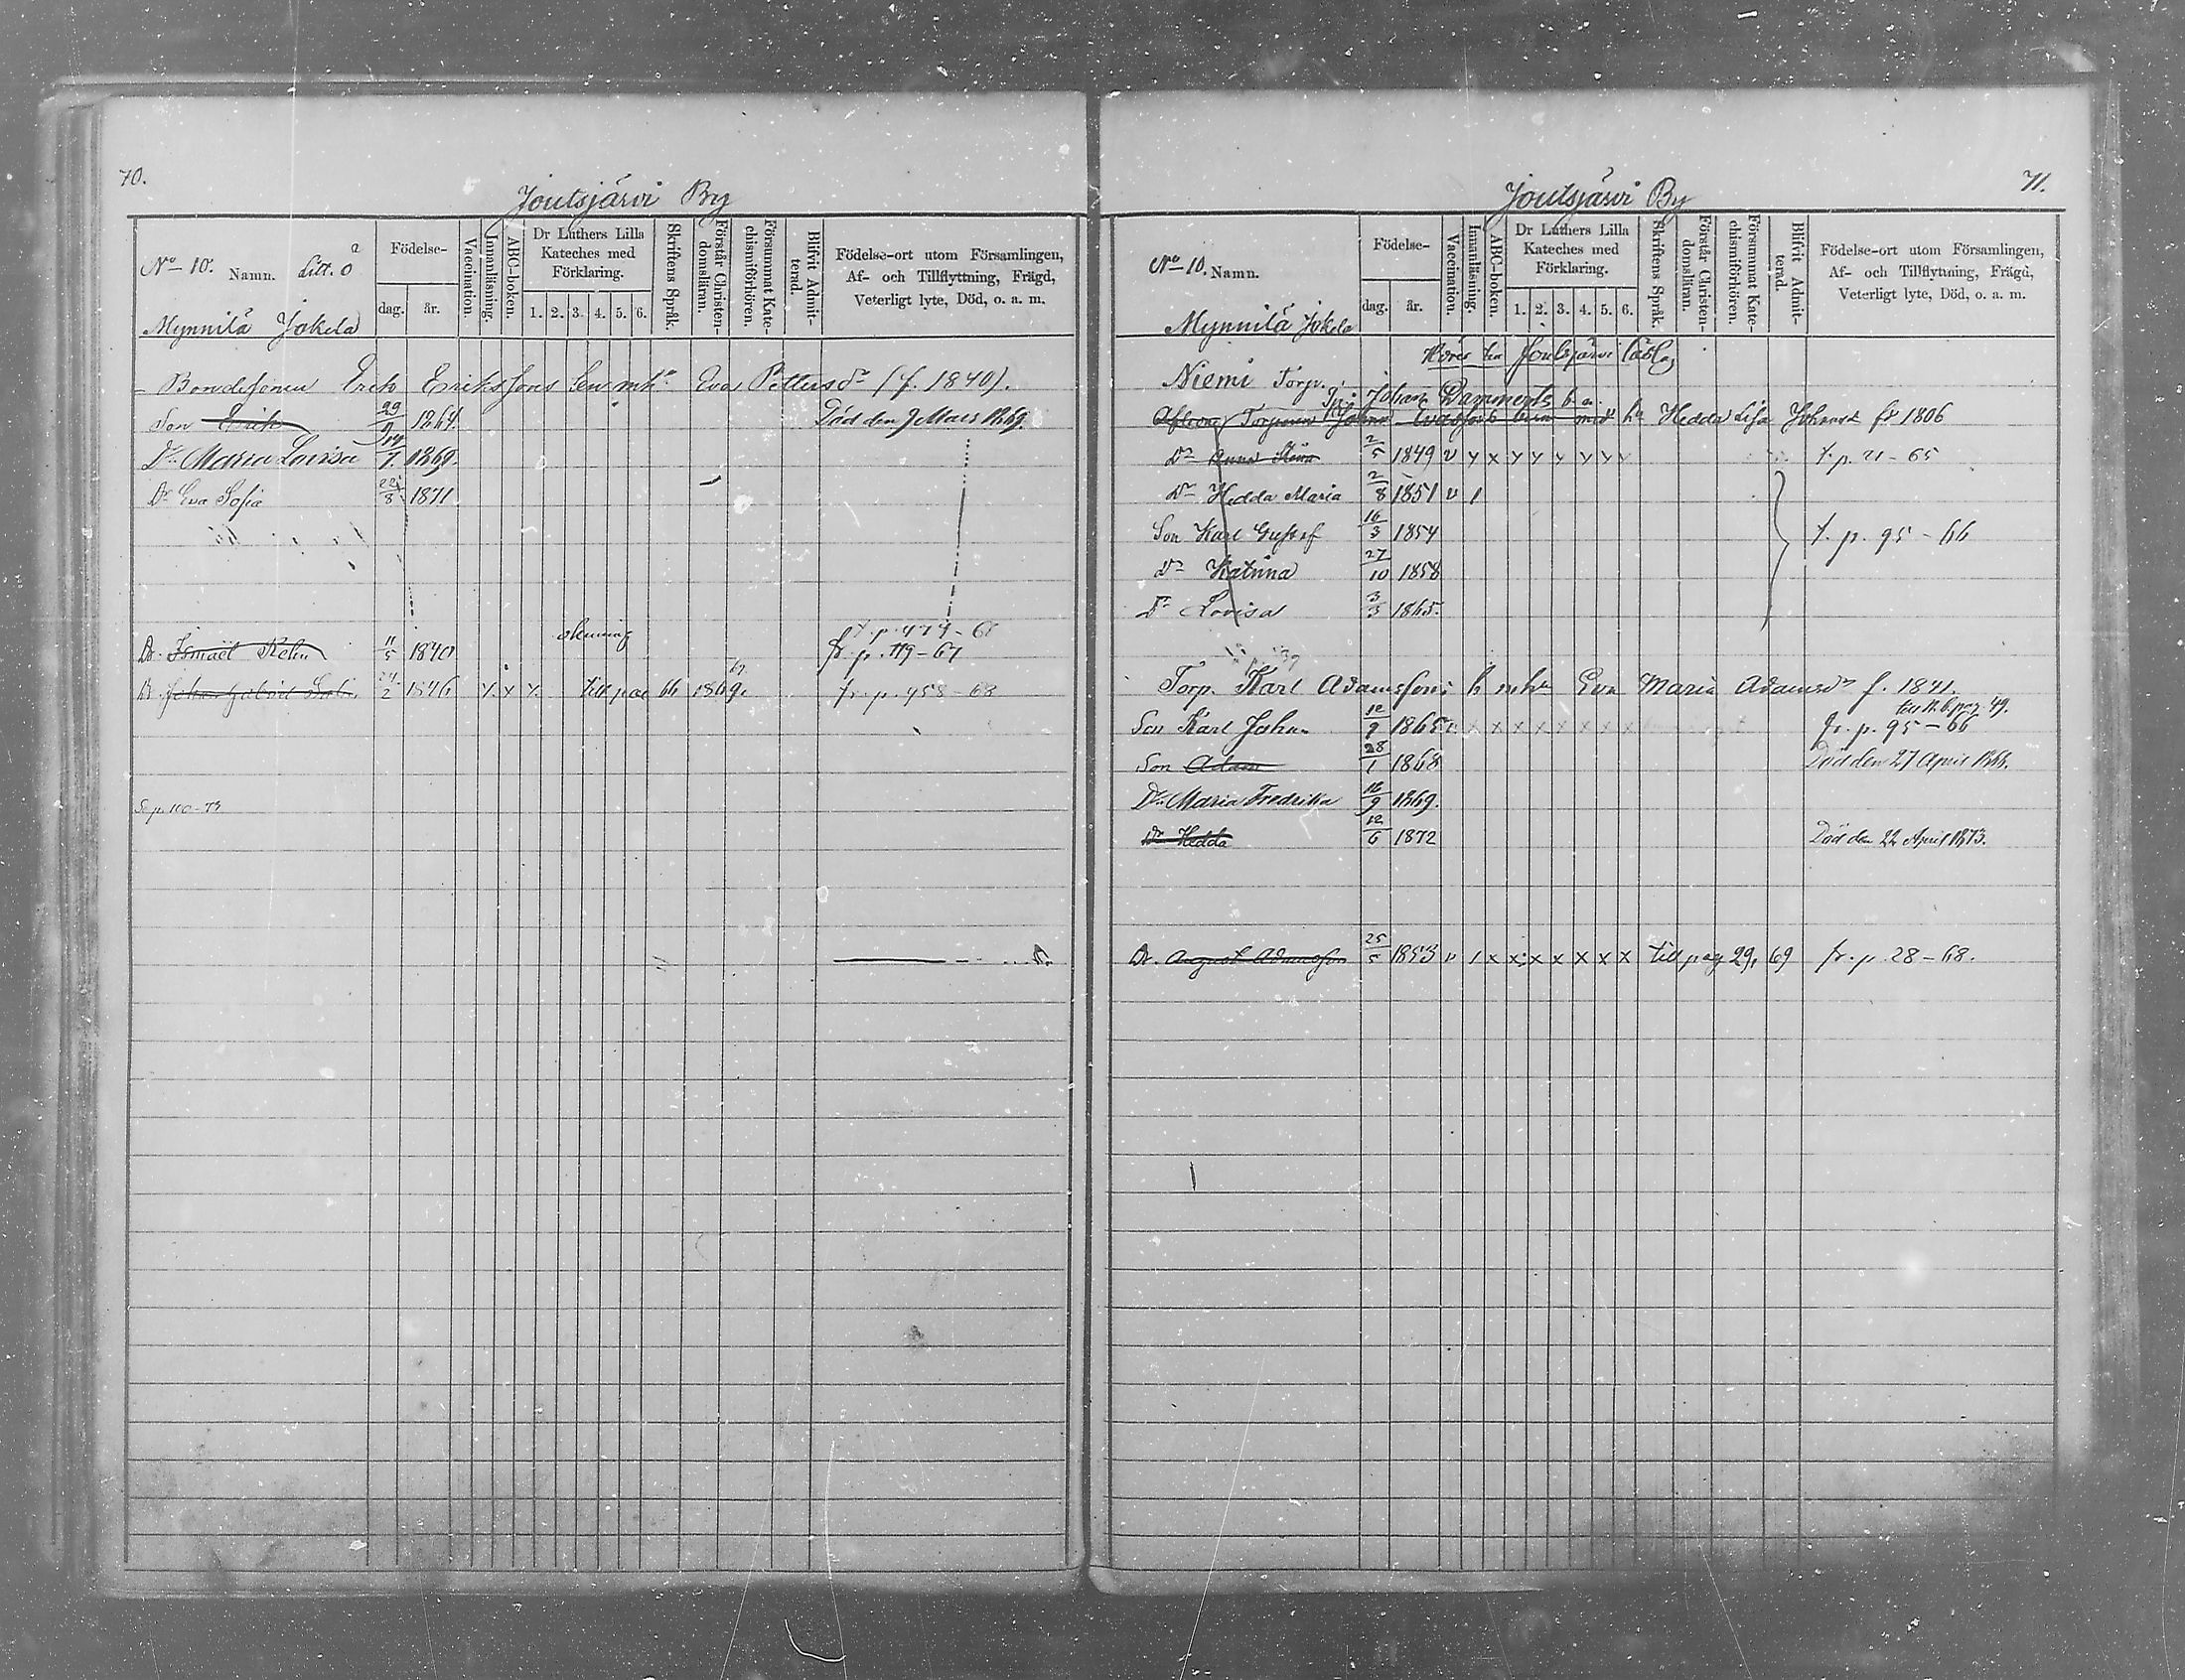 70.
Joutsjärvi By
No 10. Namn. Litt. a
Mynnilä Jokela
Födelse-
dag. år.
Vaccination.
Innanläsning.
ABC-boken.
Dr Luthers Lilla Kateches med Förklaring.
1. 2. 3. 4. 5. 6.
Skriftens Språk.
Förstår Christen-domsläran.
Försummat Kate-chismiförhören.
Blifvit Admit-terad.
Födelse-ort utom Församlingen,
Af- och Tillflyttning, Frägd,
Veterligt lyte, Död, o. a. m.
Bondesonen Erik Erikssons mhu Eva Pettersdr (f. 1840).
Son Erik 29/9 1864. Död den 7 Mars 1869.
Dr Maria Lovisa 14/7. 1869.
Dr Eva Sofia 22/8 1871.
Dr. Ismael 11/5 1840 fr. p. 119-67
Dr. Johan Gabriel 24/2 1846 x x x till pag 66 1869. fr. p. 458-68
Se p. 100-79
71.
Joutsjärvi By
No 10. Namn.
Mynnilä Jokela
Födelse-
dag. år.
Vaccination.
Innanläsning.
ABC-boken.
Dr Luthers Lilla Kateches med Förklaring.
1. 2. 3. 4. 5. 6.
Skriftens Språk.
Förstår Christen-domsläran.
Försummat Kate-chismiförhören.
Blifvit Admit-terad.
Födelse-ort utom Församlingen,
Af- och Tillflyttning, Frägd,
Veterligt lyte, Död, o. a. m.
Hörer till Joutsjärvi
Niemi Torp.
Johan b. a.
Torparen Johan barn med hu Hedda Lisa Johansd fr 1806
Dr Anna 2/5 1849 v x x x x x x x x t. p. 21-65
Dr Hedda Maria 2/8 1851 v /
Son Karl Gustaf 16/3 1854 t. p. 95-66
Dr Katrina 27/10 1858
Dr Lovisa 3/3 1865.
Torp. Karl Adamssons b mhu Eva Maria Adamsdr f. 1841.
till N. b. pag. 49.
Son Karl Johan 12/9 1865 v. x x x x x x x x fr. p. 95-66
Son Adam 28/1 1868 Död den 27 April 1868.
Dr Maria Fredrika 16/9 1869.
Dr Hedda 12/6 1872 Död den 22 April 1873.
Dr. August Adamsson 25/5 1853 v / x x x x x x x till pag 29, 69 fr. p. 28-68.